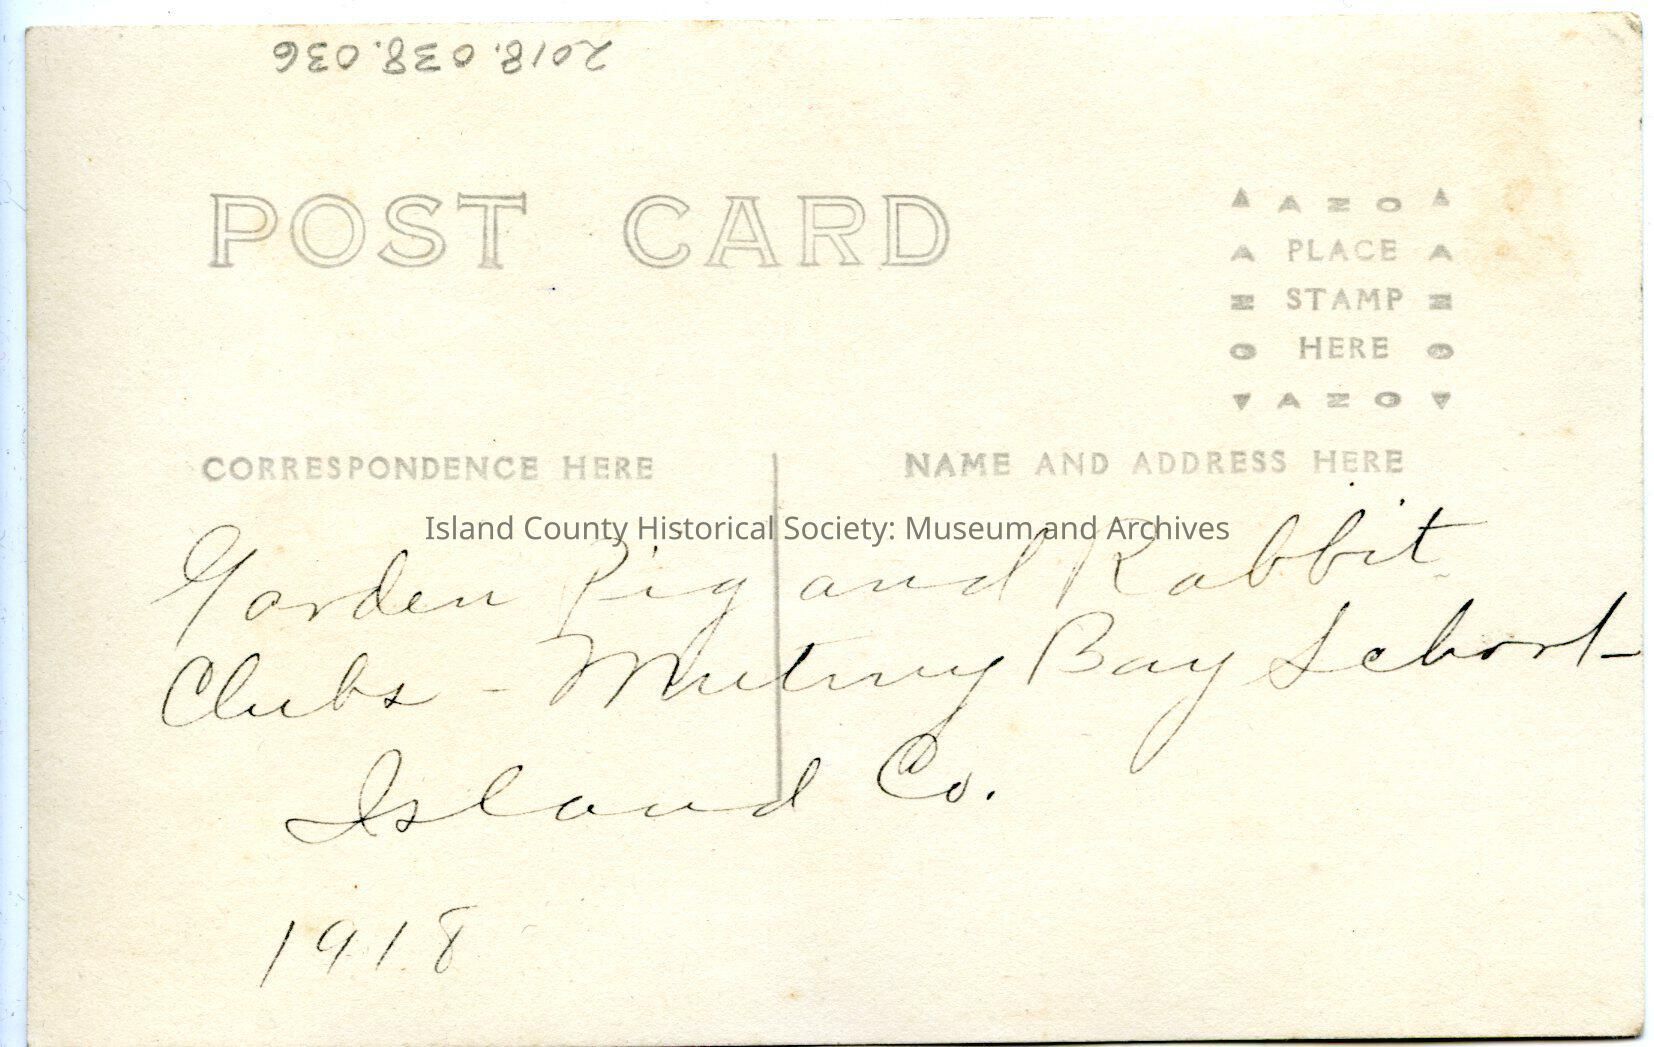 2018.038.036
POST CARD
AZO
PLACE
STAMP
HERE
AZO
CORRESPONDENCE HERE
NAME AND ADDRESS HERE
Island County Historical Society: Museum and Archives
Garden Pig and Rabbit
Clubs - Mutiny Bay School -
Island Co.
1918